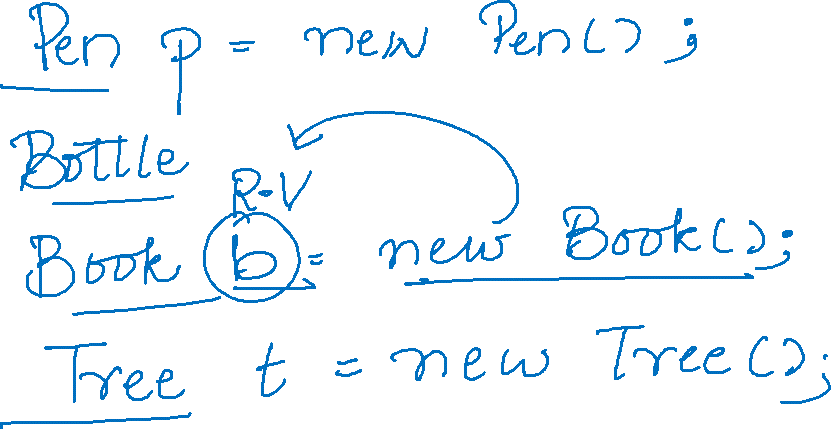 Pen p = new Pen();
Bottle
R-V
Book b = new Book();
Tree t = new Tree();